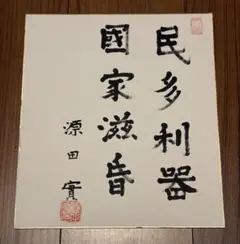 民多利器
國家滋昏
源田實